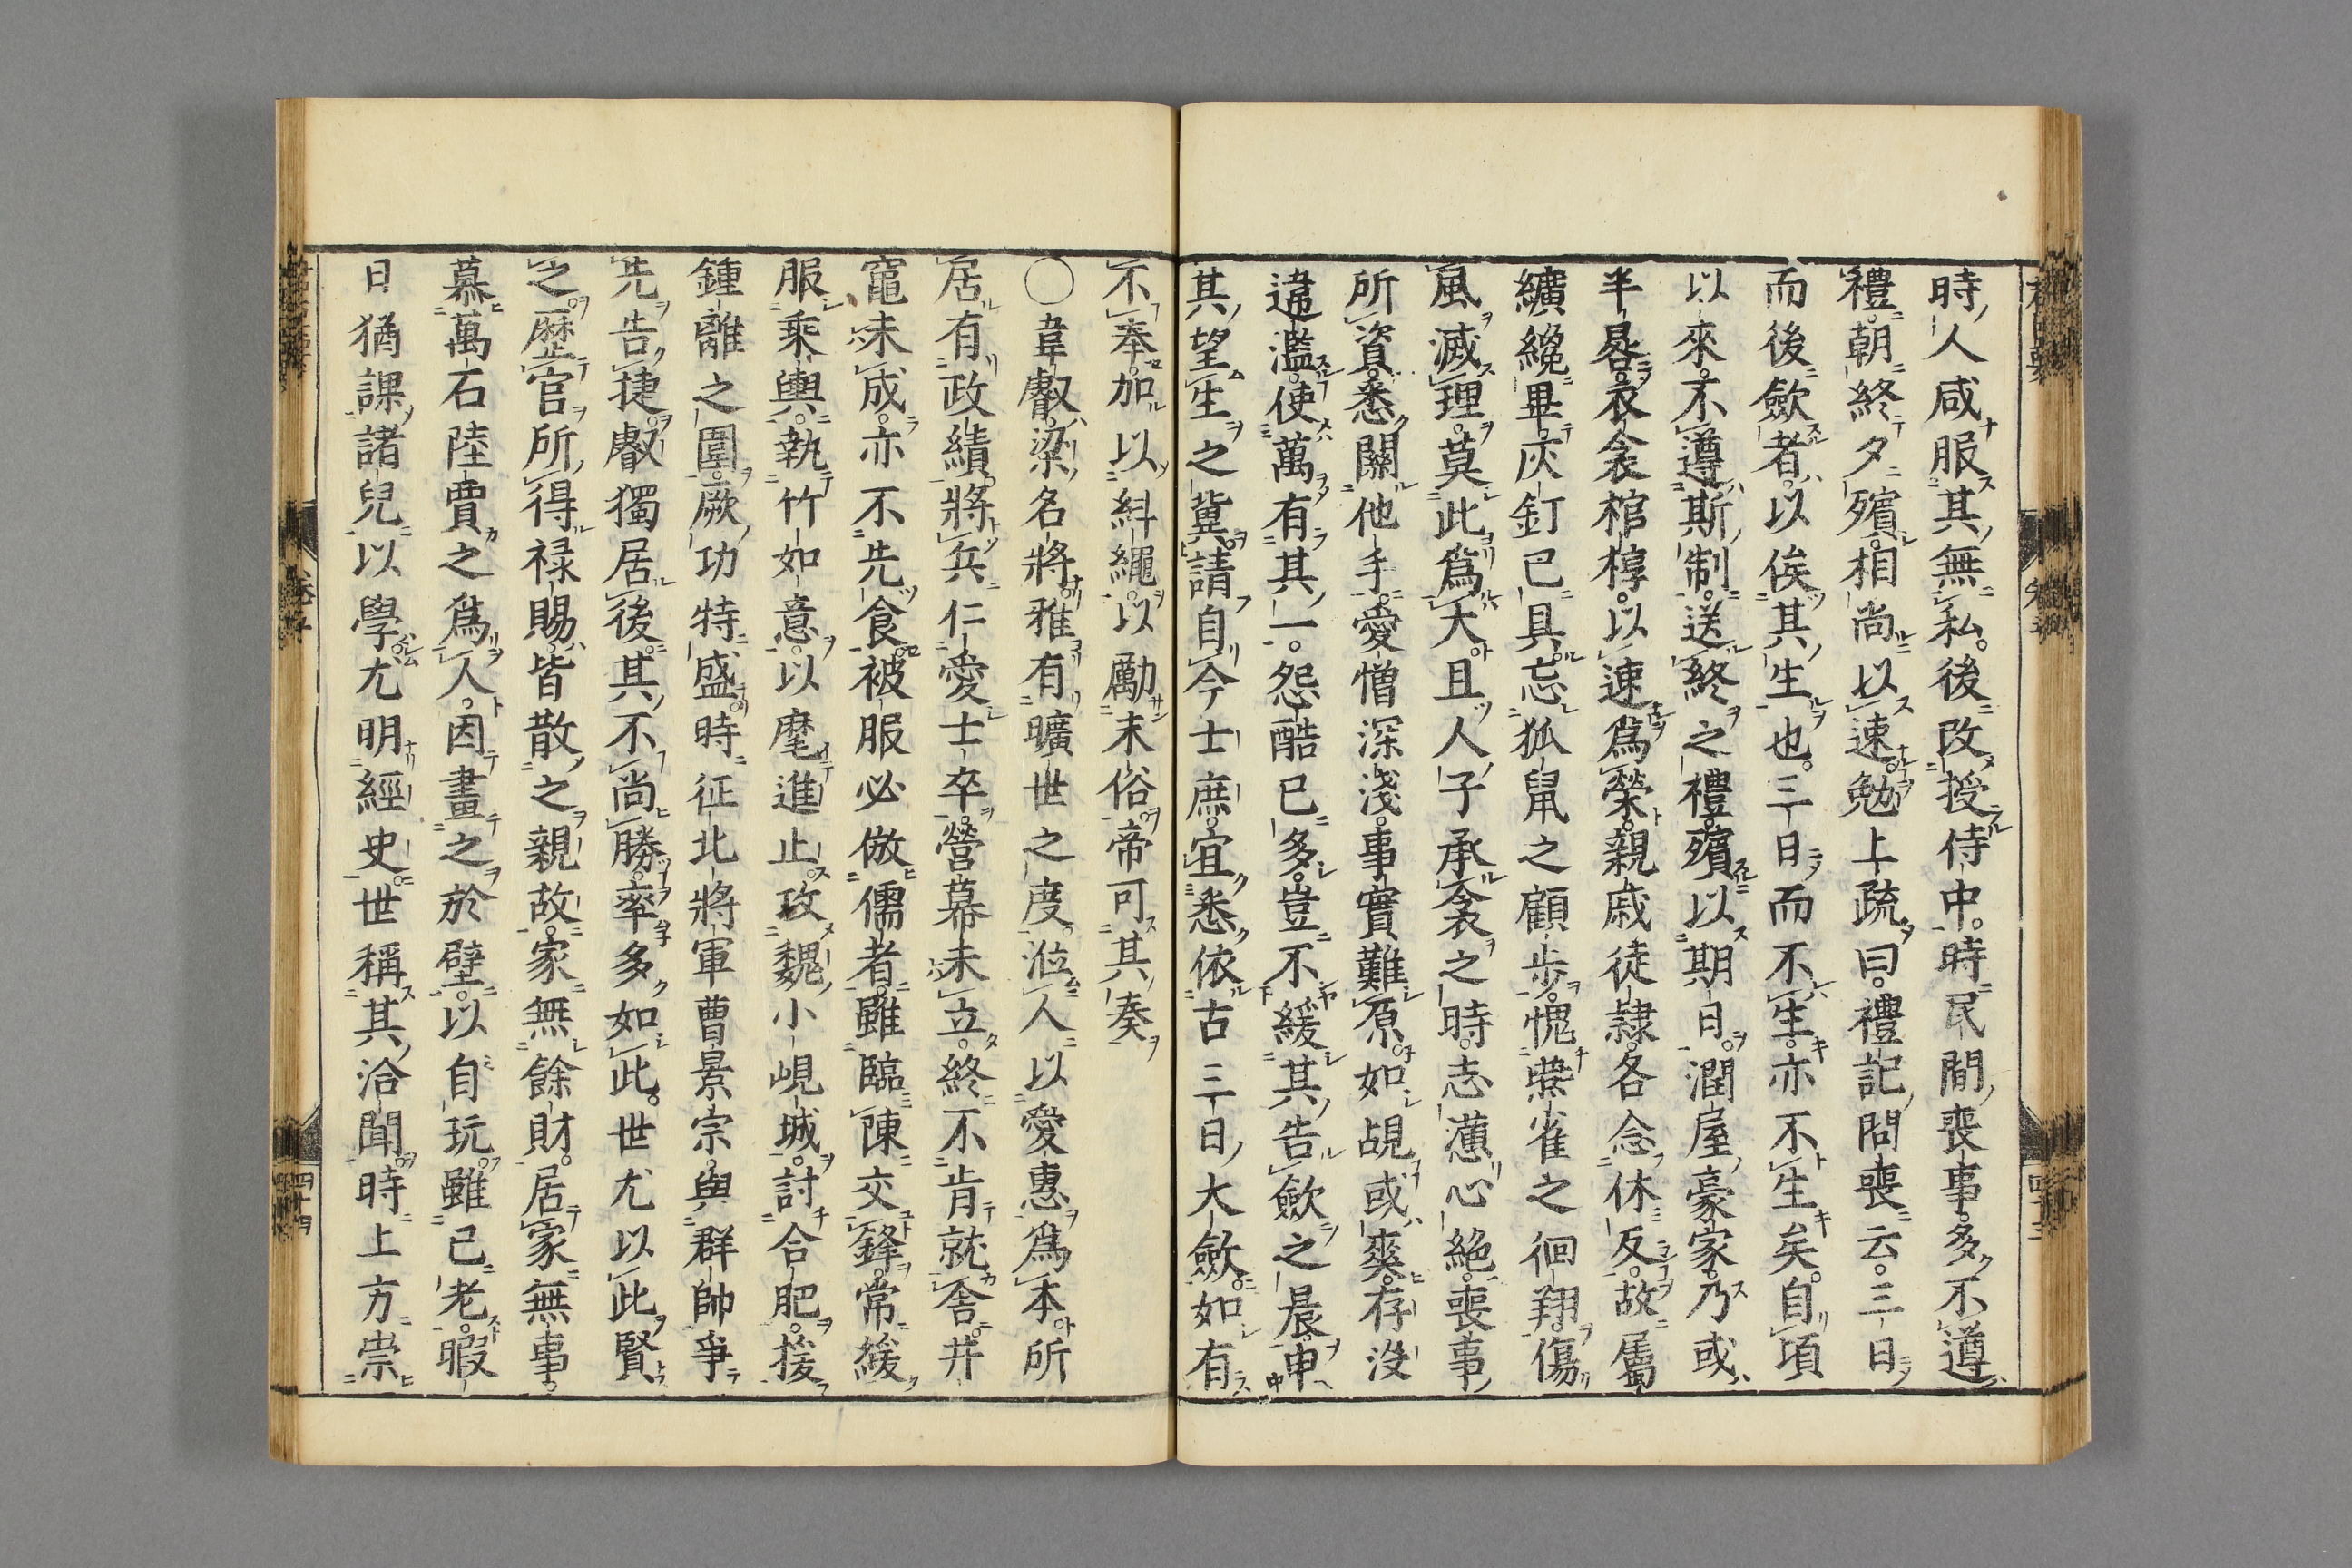 時人咸服其無私。後改授侍中。時民間喪事。多不遵
禮。朝終夕殯。相尚以速。勉上疏曰。禮記問喪云。三日
而後歛者。以俟其生也。三日而不生。亦不生矣。自頃
以來。不遵斯制。送終之禮。殯以期日。潤屋豪家。乃或
半晷。衣衾棺椁。以速為榮。親戚徒隷。各念休反。故屬
纊纔畢。灰釘已具。忘狐鼠之顧步。愧燕雀之徊翔。傷
風滅理。莫此為大。且人子承衾之時。志懣心絶。喪事
所資。悉關他手。愛憎深淺。事實難原。如覘或爽。存沒
違濫。使萬有其一。怨酷已多。豈不緩其告歛之晨。申
其望生之冀。請自今士庶。宜悉依古三日大歛。如有
不奉。加以糾繩。以勵末俗。帝可其奏
〇韋叡。梁名將。雅有曠世之度。涖人以愛惠為本。所
居有政績。將兵仁愛士卒。營幕未立。終不肯就舍。井
竈未成。亦不先食。被服必倣儒者。雖臨陳交鋒。常緩
服乘輿。執竹如意。以麾進止。攻魏小峴城。討合肥。援
鍾離之圍。厥功特盛。時征北將軍曹景宗。與群帥爭
先告捷。叡獨居後。其不尚勝。率多如此。世尤以此賢
之。歷官所得祿賜。皆散之親故。家無餘財。居家無事。
慕萬石陸賈之為人。因畫之於壁。以自玩。雖已老。暇
日猶課諸兒以學。尤明經史。世稱其洽聞。時上方崇
四十三
四十四